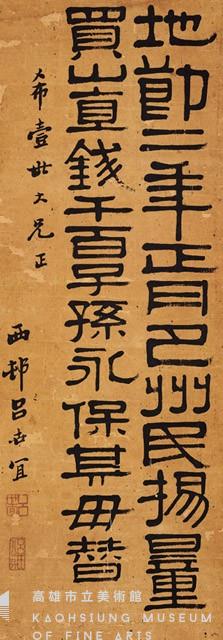 地節二年正月巴州民揚量
買山直錢千百子孫永保其毋替
希壹世大兄正
西邨呂世宜
高雄市立美術館
KAOHSIUNG MUSEUM
OF FINE ARTS